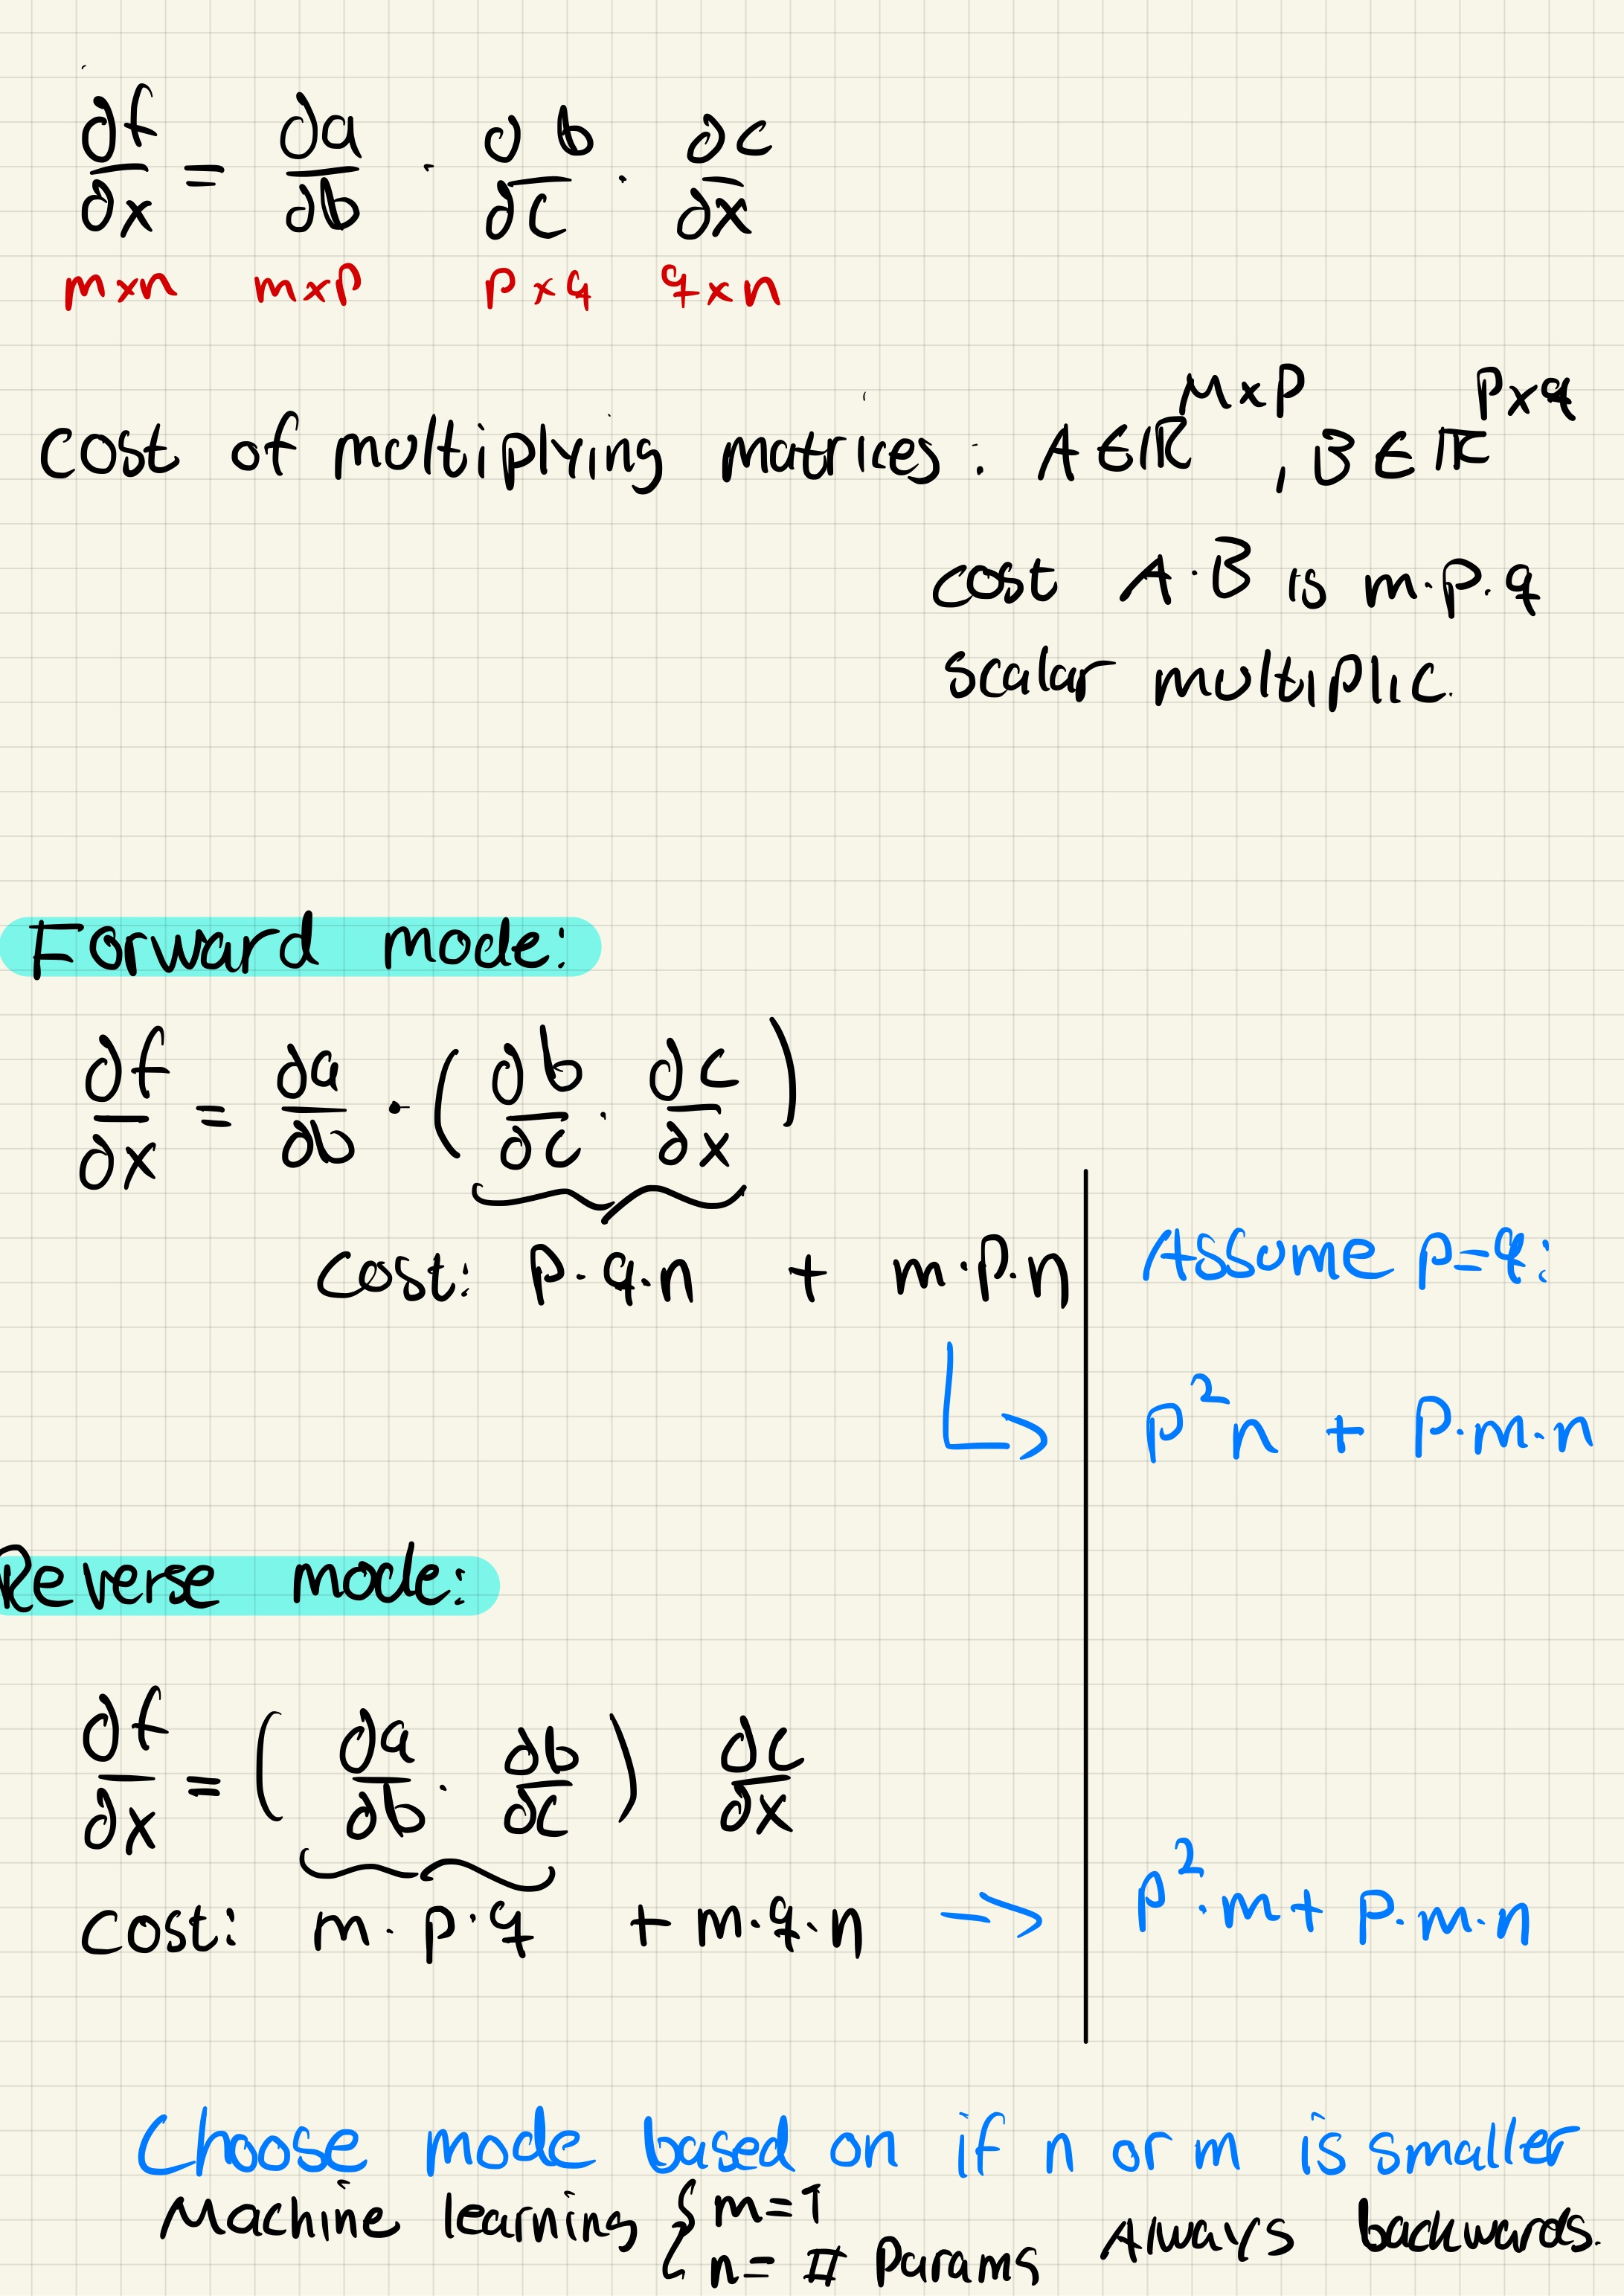 ∂f/∂x = ∂a/∂b · ∂b/∂c · ∂c/∂x
m×n m×p p×q q×n
cost of multiplying matrices: A∈ℝ^(m×p), B∈ℝ^(p×q)
cost A·B is m·p·q
scalar multiplic.
Forward mode:
∂f/∂x = ∂a/∂b · (∂b/∂c · ∂c/∂x)
cost: p·q·n + m·p·n
Assume p=q:
↳ p²n + p·m·n
Reverse mode:
∂f/∂x = (∂a/∂b · ∂b/∂c) ∂c/∂x
cost: m·p·q + m·q·n → p²·m + p·m·n
Choose mode based on if n or m is smaller
Machine learning { m=1
n= # params Always backwards.